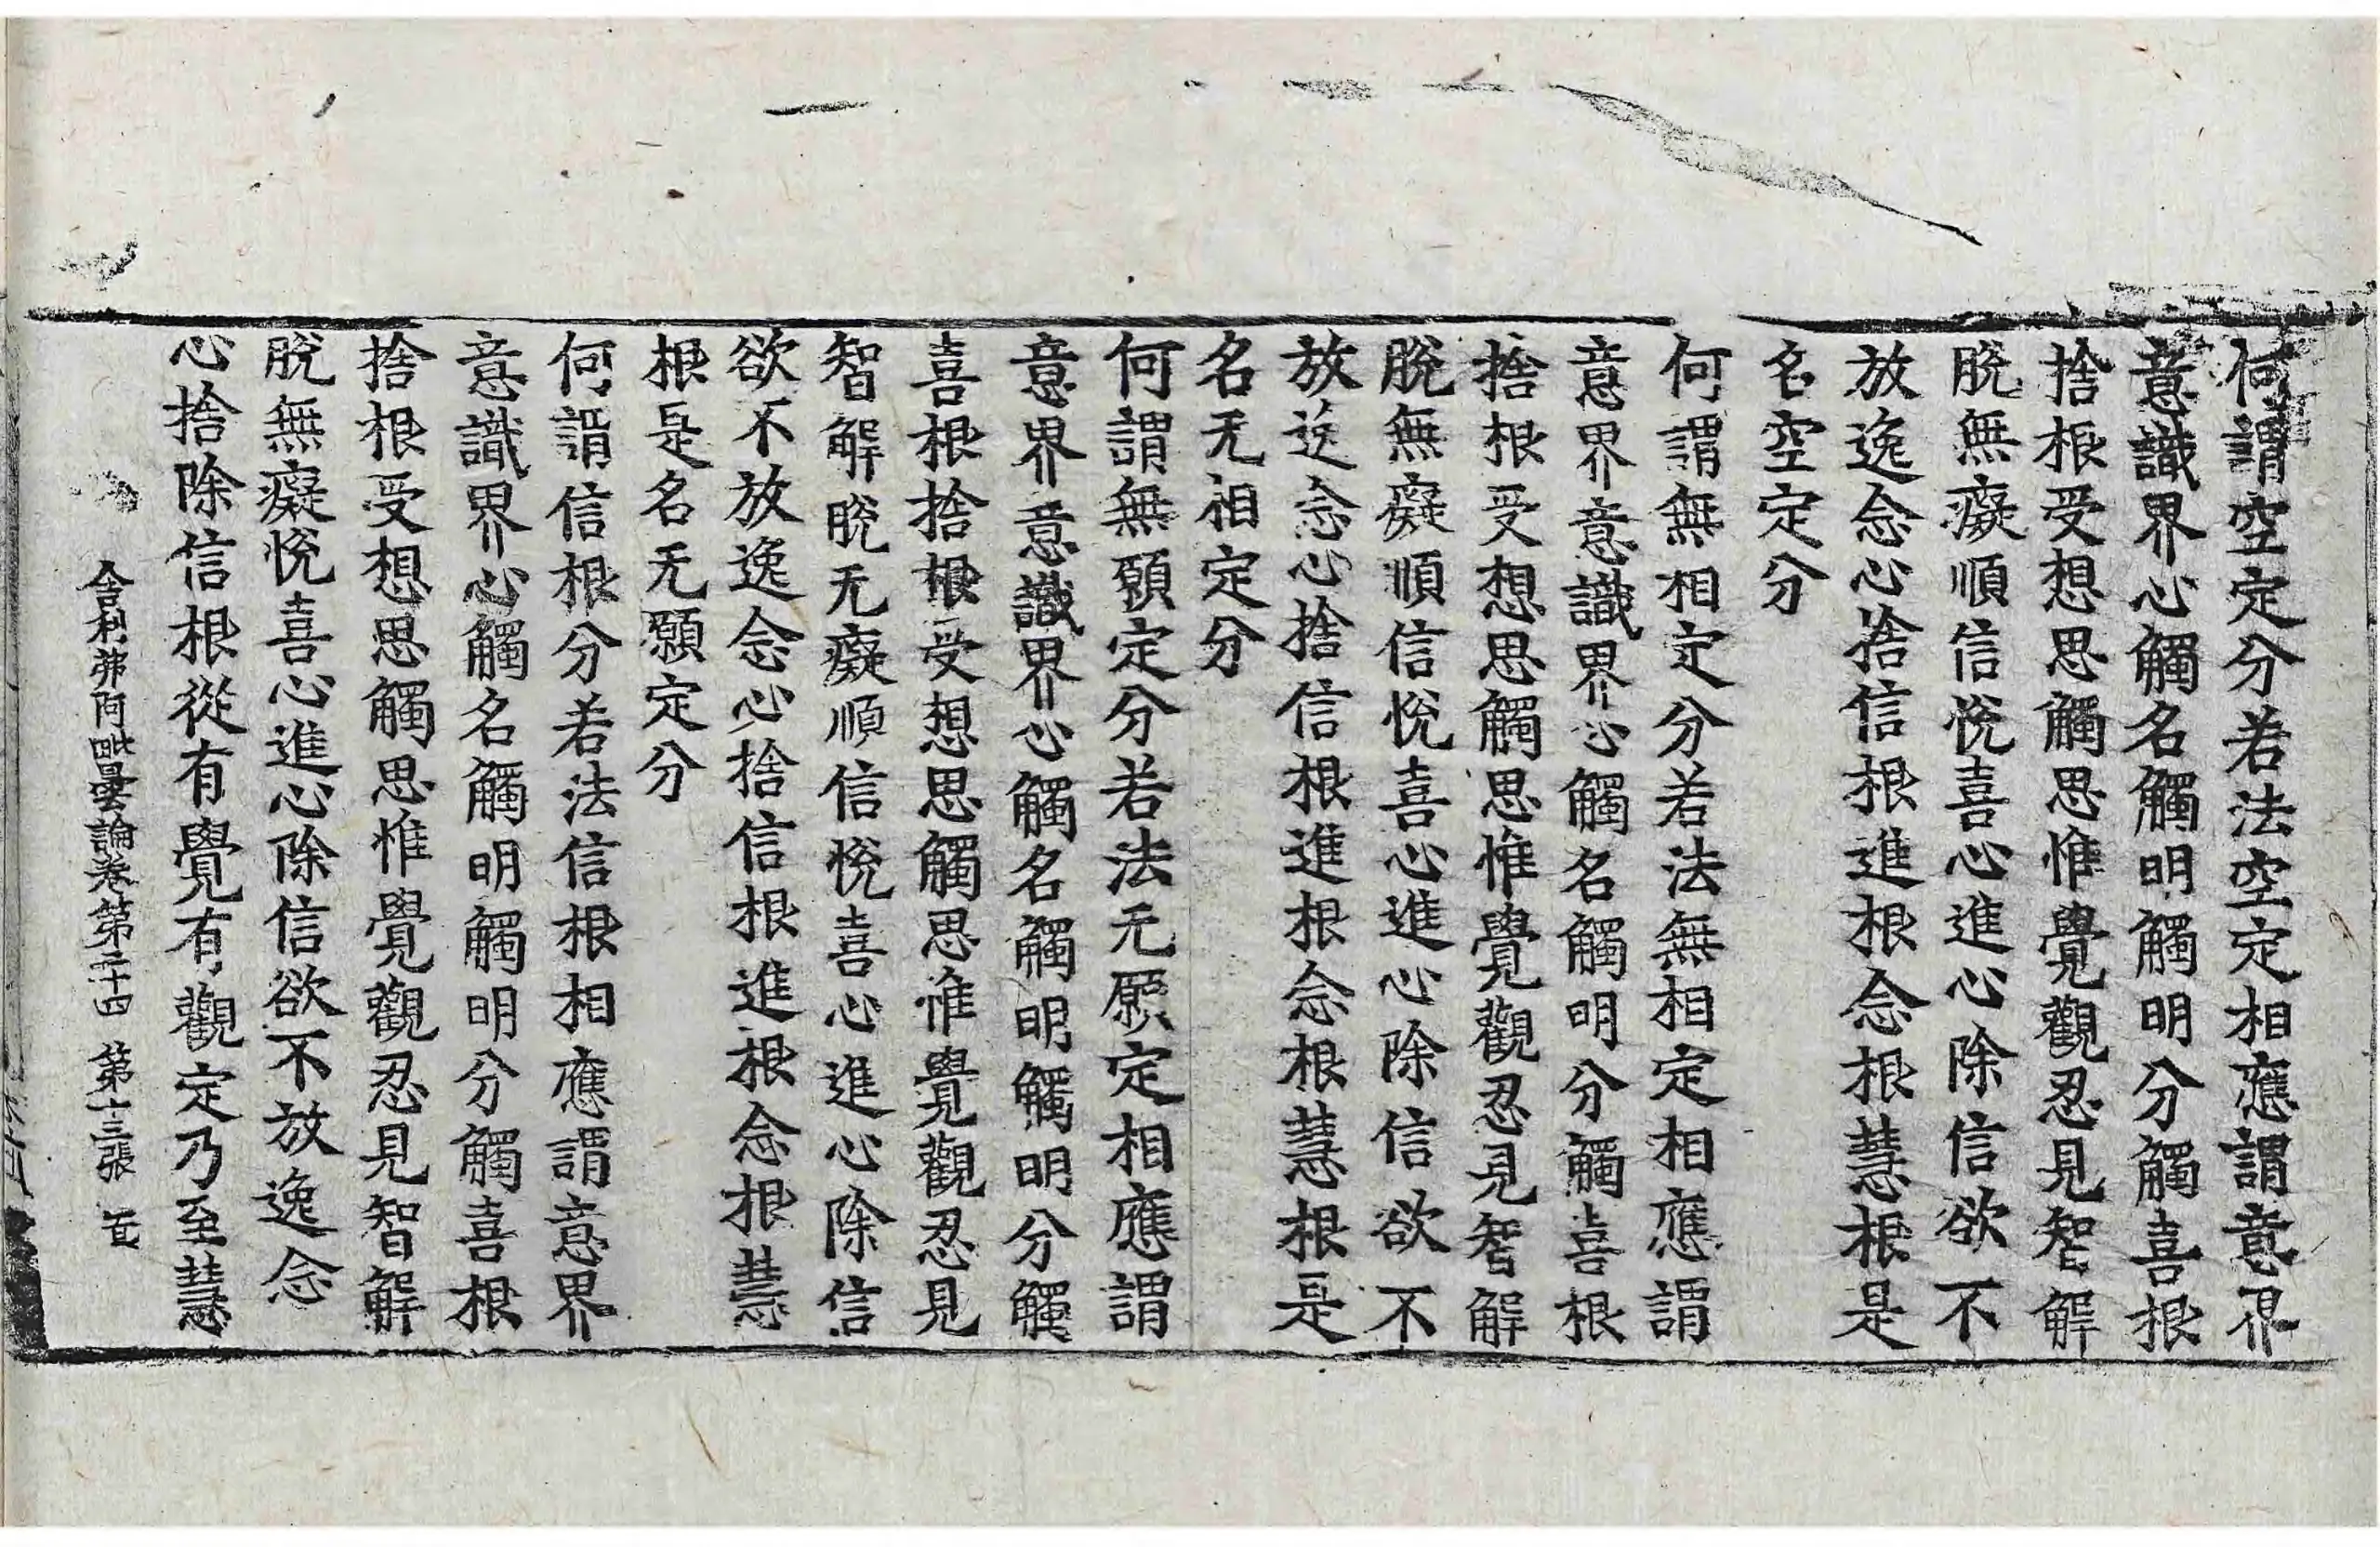 何謂空定分若法空定相應謂意界
意識界心觸名觸明觸明分觸喜根
捨根受想思觸思惟覺觀忍見智解
脫無癡順信悅喜心進心除信欲不
放逸念心捨信根進根念根慧根是
名空定分
何謂無相定分若法無相定相應謂
意界意識界心觸名觸明分觸喜根
捨根受想思觸思惟覺觀忍見智解
脫無癡順信悅喜心進心除信欲不
放逸念心捨信根進根念根慧根是
名无相定分
何謂無願定分若法无願定相應謂
意界意識界心觸名觸明觸明分觸
喜根捨根受想思觸思惟覺觀忍見
智解脫无癡順信悅喜心進心除信
欲不放逸念心捨信根進根念根慧
根是名无願定分
何謂信根分若法信根相應謂意界
意識界心觸名觸明觸明分觸喜根
捨根受想思觸思惟覺觀忍見智解
脫無癡悅喜心進心除信欲不放逸念
心捨除信根從有覺有觀定乃至慧
舍利弗阿毗曇論卷第二十四 第十三張